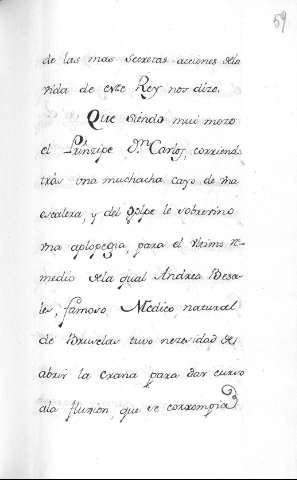 59
de las mas secretas acciones dela
vida de este Rey nos dize.
Que siendo mui mozo
el Prinzipe Dn. Carlos, corriendo
tràs vna muchacha cayo de vna
escalera, y del golpe le sobrevino
vna aplopegia, para el vltimo re-
medio dela qual Andrea Besa-
les, famoso Medico, natural
de Bruselas tuvo nezesidad de
abrir la crana para dar curso
ala fluxion, que se corrompia